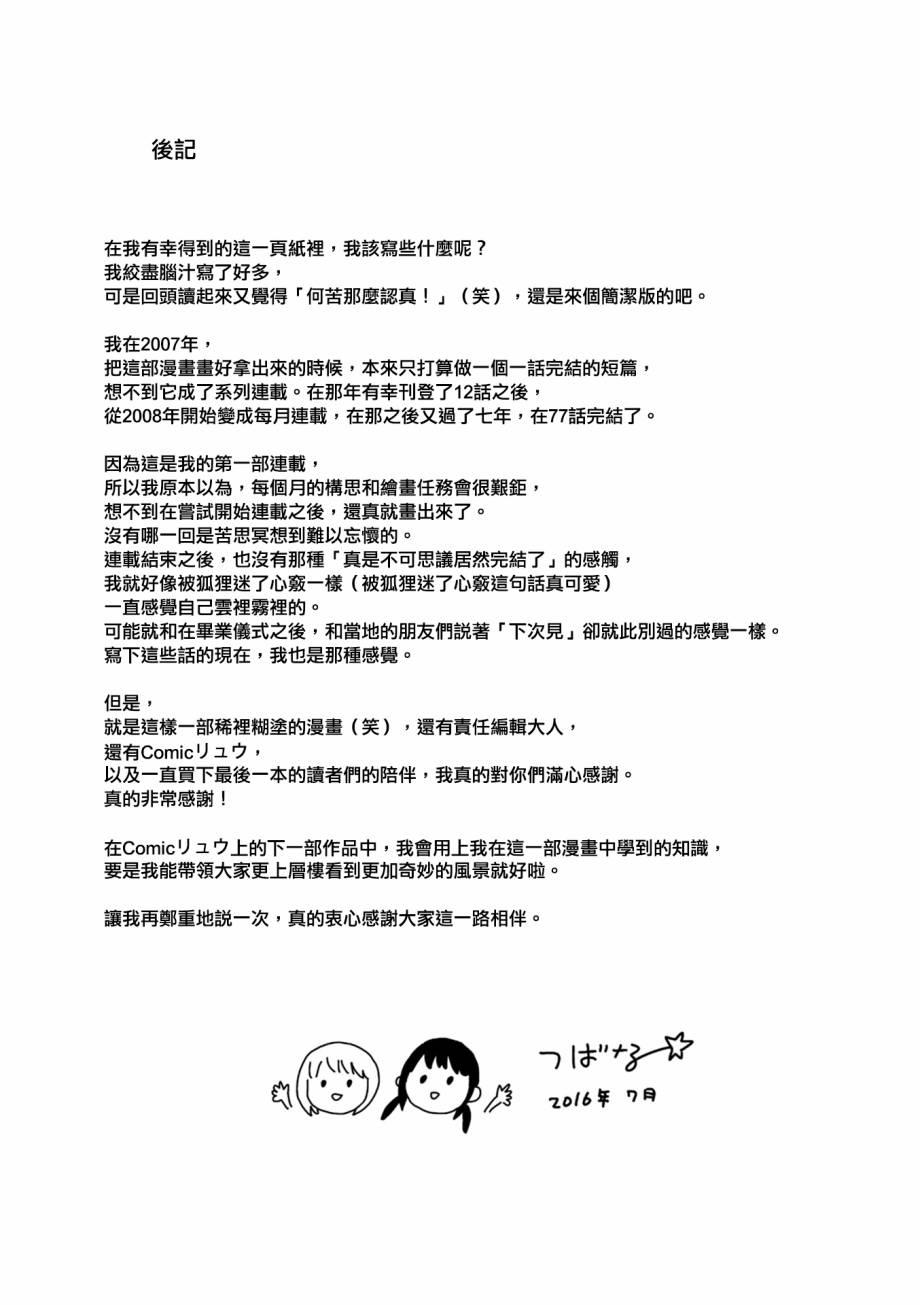 後記
在我有幸得到的這一頁紙裡，我該寫些什麼呢？
我絞盡腦汁寫了好多，
可是回頭讀起來又覺得「何苦那麼認真！」（笑），還是來個簡潔版的吧。
我在2007年，
把這部漫畫畫好拿出來的時候，本來只打算做一個一話完結的短篇，
想不到它成了系列連載。在那年有幸刊登了12話之後，
從2008年開始變成每月連載，在那之後又過了七年，在77話完結了。
因為這是我的第一部連載，
所以我原本以為，每個月的構思和繪畫任務會很艱鉅，
想不到在嘗試開始連載之後，還真就畫出來了。
沒有哪一回是苦思冥想到難以忘懷的。
連載結束之後，也沒有那種「真是不可思議居然完結了」的感觸，
我就好像被狐狸迷了心竅一樣（被狐狸迷了心竅這句話真可愛）
一直感覺自己雲裡霧裡的。
可能就和在畢業儀式之後，和當地的朋友們説著「下次見」卻就此別過的感覺一樣。
寫下這些話的現在，我也是那種感覺。
但是，
就是這樣一部稀裡糊塗的漫畫（笑），還有責任編輯大人，
還有Comicリュウ，
以及一直買下最後一本的讀者們的陪伴，我真的對你們滿心感謝。
真的非常感謝！
在Comicリュウ上的下一部作品中，我會用上我在這一部漫畫中學到的知識，
要是我能帶領大家更上層樓看到更加奇妙的風景就好啦。
讓我再鄭重地説一次，真的衷心感謝大家這一路相伴。
つばな
2016年 7月